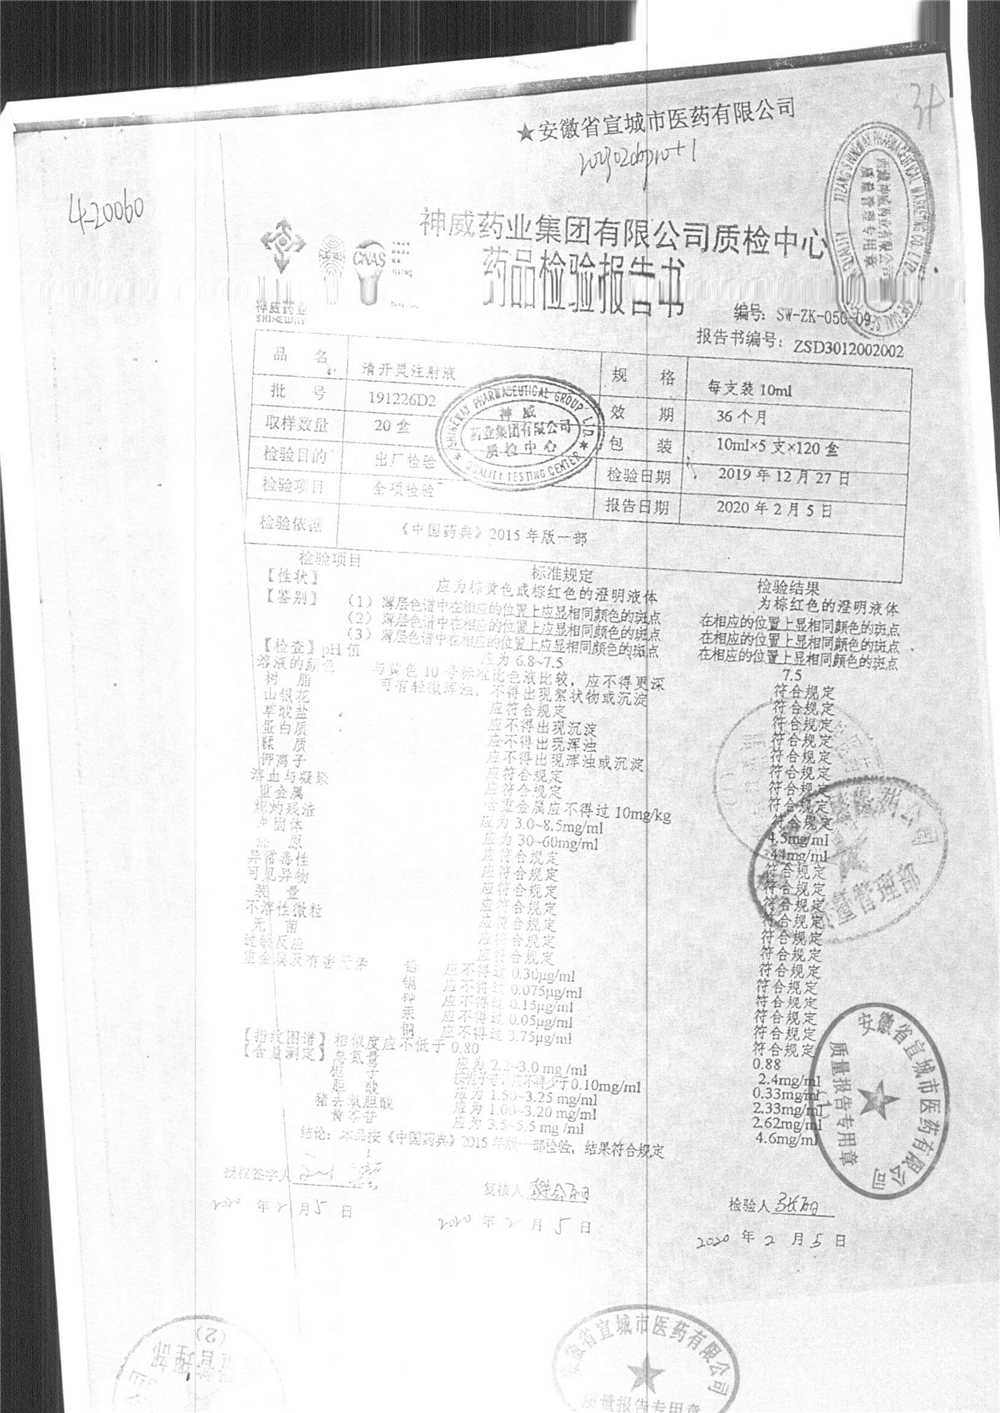 ★安徽省宣城市医药有限公司
4-20060
神威药业集团有限公司质检中心
药品检验报告书
神威药业
SHINEWAY
CNAS
编号：SW-ZK-050-09
报告书编号：ZSD3012002002
品 名 清开灵注射液 规 格 每支装 10ml
批 号 191226D2 效 期 36 个月
取样数量 20 盒 包 装 10ml×5 支×120 盒
检验目的 出厂检验 检验日期 2019 年 12 月 27 日
检验项目 全项检验 报告日期 2020 年 2 月 5 日
检验依据 《中国药典》2015 年版一部
检验项目 标准规定 检验结果
【性状】 应为棕黄色或棕红色的澄明液体 为棕红色的澄明液体
【鉴别】 （1）薄层色谱中在相应的位置上应显相同颜色的斑点 在相应的位置上显相同颜色的斑点
（2）薄层色谱中在相应的位置上应显相同颜色的斑点 在相应的位置上显相同颜色的斑点
（3）薄层色谱中在相应的位置上应显相同颜色的斑点 在相应的位置上显相同颜色的斑点
【检查】pH 值 应为 6.8~7.5 7.5
溶液的颜色 与黄色 10 号标准比色液比较，应不得更深 符合规定
树 脂 可有轻微浑浊，不得出现絮状物或沉淀 符合规定
山银花 应符合规定 符合规定
草酸盐 应不得出现沉淀 符合规定
蛋白质 应不得出现浑浊 符合规定
鞣 质 应不得出现浑浊或沉淀 符合规定
钾离子 应符合规定 符合规定
溶血与凝聚 应符合规定 符合规定
重金属 含重金属应不得过 10mg/kg 符合规定
炽灼残渣 应为 3.0~8.5mg/ml 4.5mg/ml
总固体 应为 30~60mg/ml 44mg/ml
热 原 应符合规定 符合规定
异常毒性 应符合规定 符合规定
可见异物 应符合规定 符合规定
装 量 应符合规定 符合规定
不溶性微粒 应符合规定 符合规定
无 菌 应符合规定 符合规定
过敏反应 应符合规定 符合规定
重金属及有害元素 铅 应不得过 0.30μg/ml 符合规定
镉 应不得过 0.075μg/ml 符合规定
砷 应不得过 0.15μg/ml 符合规定
汞 应不得过 0.05μg/ml 符合规定
铜 应不得过 3.75μg/ml 符合规定
【指纹图谱】相似度应不低于 0.80 0.88
【含量测定】总氮量 应为 2.2~3.0 mg /ml 2.4mg/ml
栀 子 不得少于 0.10mg/ml 0.33mg/ml
胆 酸 应为 1.50~3.25 mg/ml 2.33mg/ml
猪去氧胆酸 应为 1.00~3.20 mg/ml 2.62mg/ml
黄芩苷 应为 3.5~5.5 mg /ml 4.6mg/ml
结论：本品按《中国药典》2015 年版一部检验，结果符合规定
授权签字人 复核人 检验人
2020 年 2 月 5 日 2020 年 2 月 5 日 2020 年 2 月 5 日
SHINEWAY PHARMACEUTICAL GROUP LTD.
神威
药业集团有限公司
质检中心
QUALITY TESTING CENTER
西藏神威药业有限公司
质量管理专用章
质量管理部
安徽省宣城市医药有限公司
质量报告专用章
安徽省宣城市医药有限公司
质量报告专用章
管理部
(2)